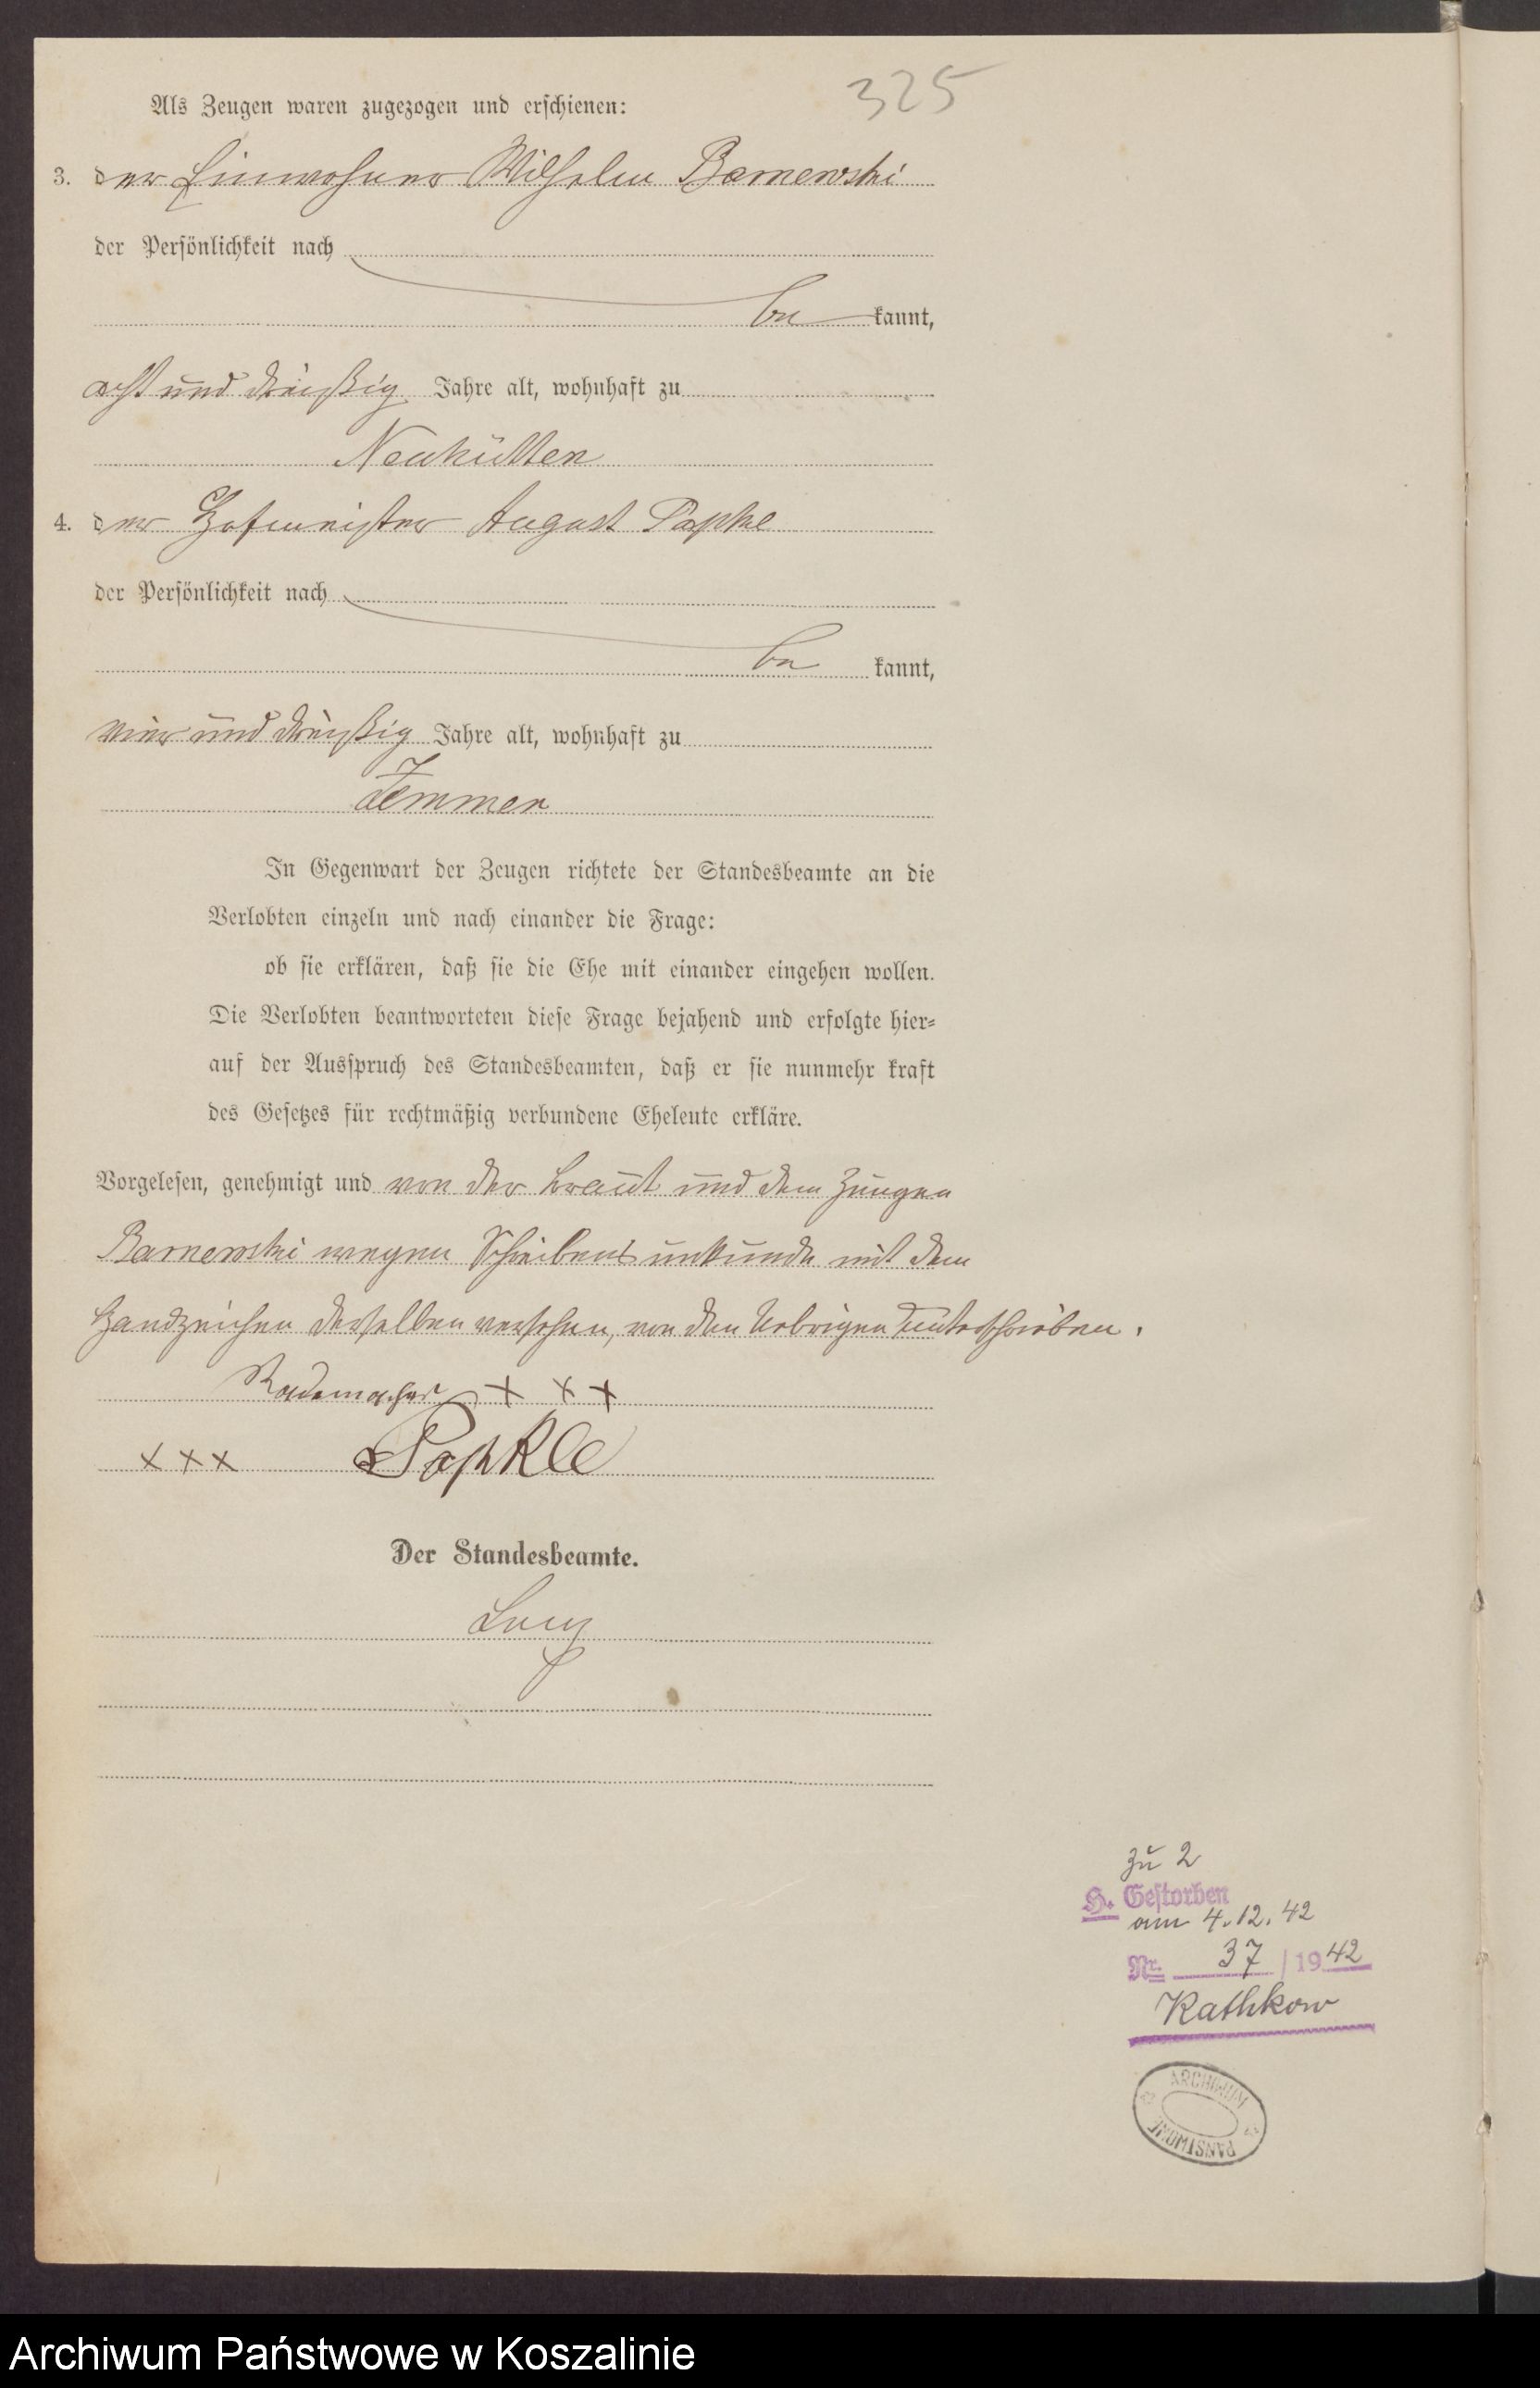 325
Als Zeugen waren zugezogen und erschienen:
3. der Einwohner Wilhelm Barnewski
der Persönlichkeit nach
be kannt,
acht und dreißig Jahre alt, wohnhaft zu
Neuhütten
4. der Hofmeister August Papke
der Persönlichkeit nach
be kannt,
vier und dreißig Jahre alt, wohnhaft zu
Zemmen
In Gegenwart der Zeugen richtete der Standesbeamte an die
Verlobten einzeln und nach einander die Frage:
ob sie erklären, daß sie die Ehe mit einander eingehen wollen.
Die Verlobten beantworteten diese Frage bejahend und erfolgte hier-
auf der Ausspruch des Standesbeamten, daß er sie nunmehr kraft
des Gesetzes für rechtmäßig verbundene Eheleute erkläre.
Vorgelesen, genehmigt und von der Braut und dem Zeugen
Barnewski wegen Schreibensunkunde mit dem
Handzeichen derselben versehen, von den Uebrigen unterschrieben.
Rademacher + + +
+ + + Papke
Der Standesbeamte.
zu 2
H. Gestorben
am 4.12.42
Nr. 37 / 1942
Kathkow
ARCHIWUM
PAŃSTWOWE
Archiwum Państwowe w Koszalinie